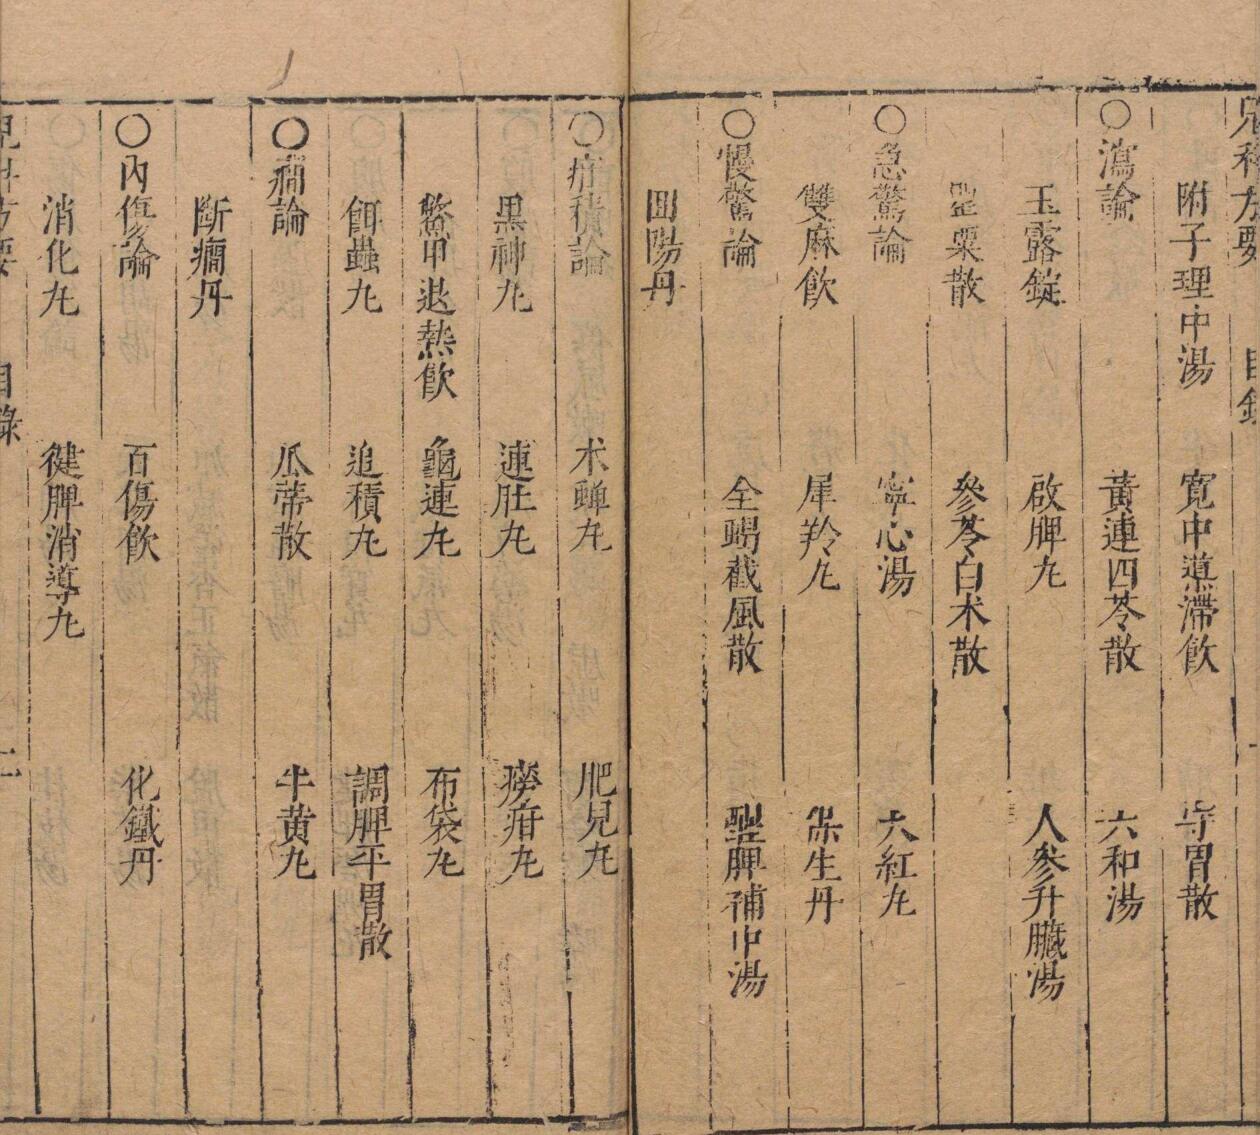 兒科方要 目錄
附子理中湯 寬中慓滯飲 守胃散
○瀉論 黃連四苓散 六和湯
玉露錠 啟脾九 人參升臟湯
罌粟散 參苓白术散
○急驚論 寧心湯 大紅九
雙麻飲 犀羚九 保生丹
○慢驚論 全蝎截風散 醒脾補中湯
回陽丹
○疳積論 术蟬九 肥兒九
黑神九 連肚九 癆疳九
鱉甲退熱飲 龜連九 布袋九
餌蟲九 追積九 調脾平胃散
○癎論 瓜蒂散 牛黃九
斷癎丹
○內傷論 百傷飲 化鐵丹
消化九 健脾消導九
兒科方要 目錄